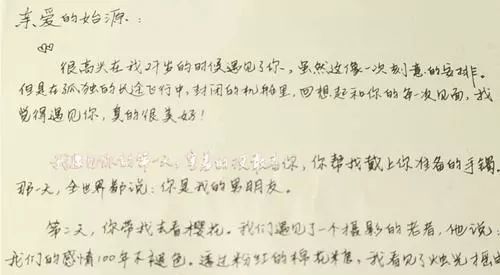 亲爱的始源:
很高兴在我27岁的时候遇见了你,虽然这像一次刻意的安排。
但是在孤独的长途飞行中,封闭的机舱里,回想起和你的每一次见面,我
觉得遇见你,真的很美好!
我遇见你的第一天,你帮我戴上你准备的手镯。
那一天,全世界都说:你是我的男朋友。
第二天,你带我去看樱花。我们遇见了一个摄影的老者,他说:
我们的感情100年不褪色。透过粉红的棉花糖,我看见了烛光摇